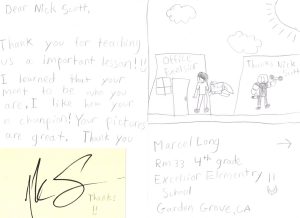 Dear Nick Scott,
Thank you for teaching
us a important lesson!!
I learned that your
ment to be who you
are. I like how your
a champion! Your pictures
are great. Thank you
Thanks
!!
Office
Excelsior
Thanks Nick
Scott
Marcel Long
Rm 33 4th grade
Excelsior Elementry
School
Garden Grove, CA